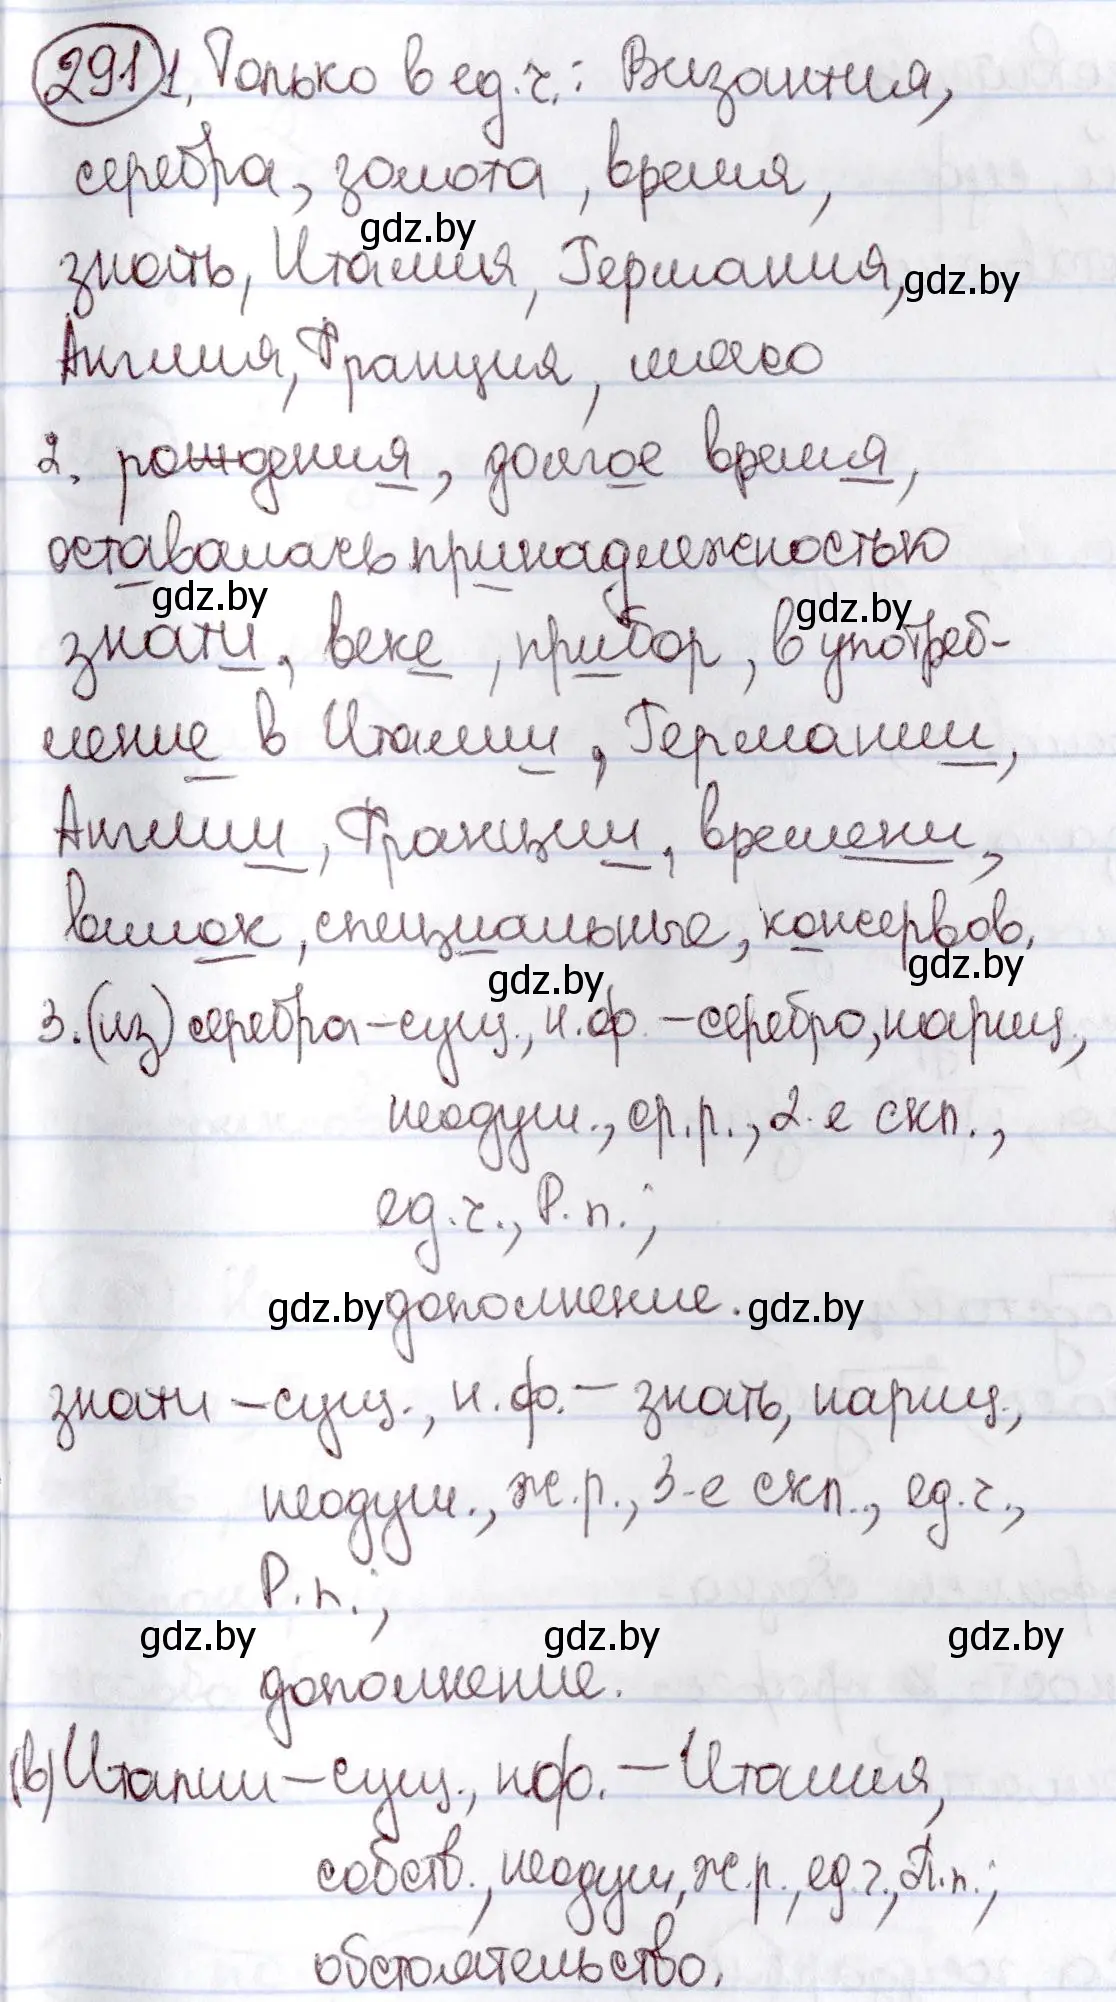 291 1. Только в ед.ч.: Византия,
серебра, золота, время,
gdz.by
знать, Италия, Германия, gdz.by
Англия, Франция, мясо
2. рождения, долгое время,
оставалась принадлежностью
gdz.by gdz.by
знати, веке, прибор, в употреб-
ление в Италии, Германии,
Англии, Франции, времени,
вилок, специальные, консервов.
gdz.by gdz.by
3. (из) серебра – сущ., н.ф. – серебро, нариц.,
неодуш., ср.р., 2-е скл.,
ед.ч., Р.п.;
gdz.by дополнение. gdz.by
знати – сущ., н.ф. – знать, нариц.,
неодуш., ж.р., 3-е скл., ед.ч.,
Р.п.;
gdz.by gdz.by gdz.by
дополнение.
(в) Италии – сущ., н.ф. – Италия,
собств., неодуш., ж.р., ед.ч., П.п.;
обстоятельство.